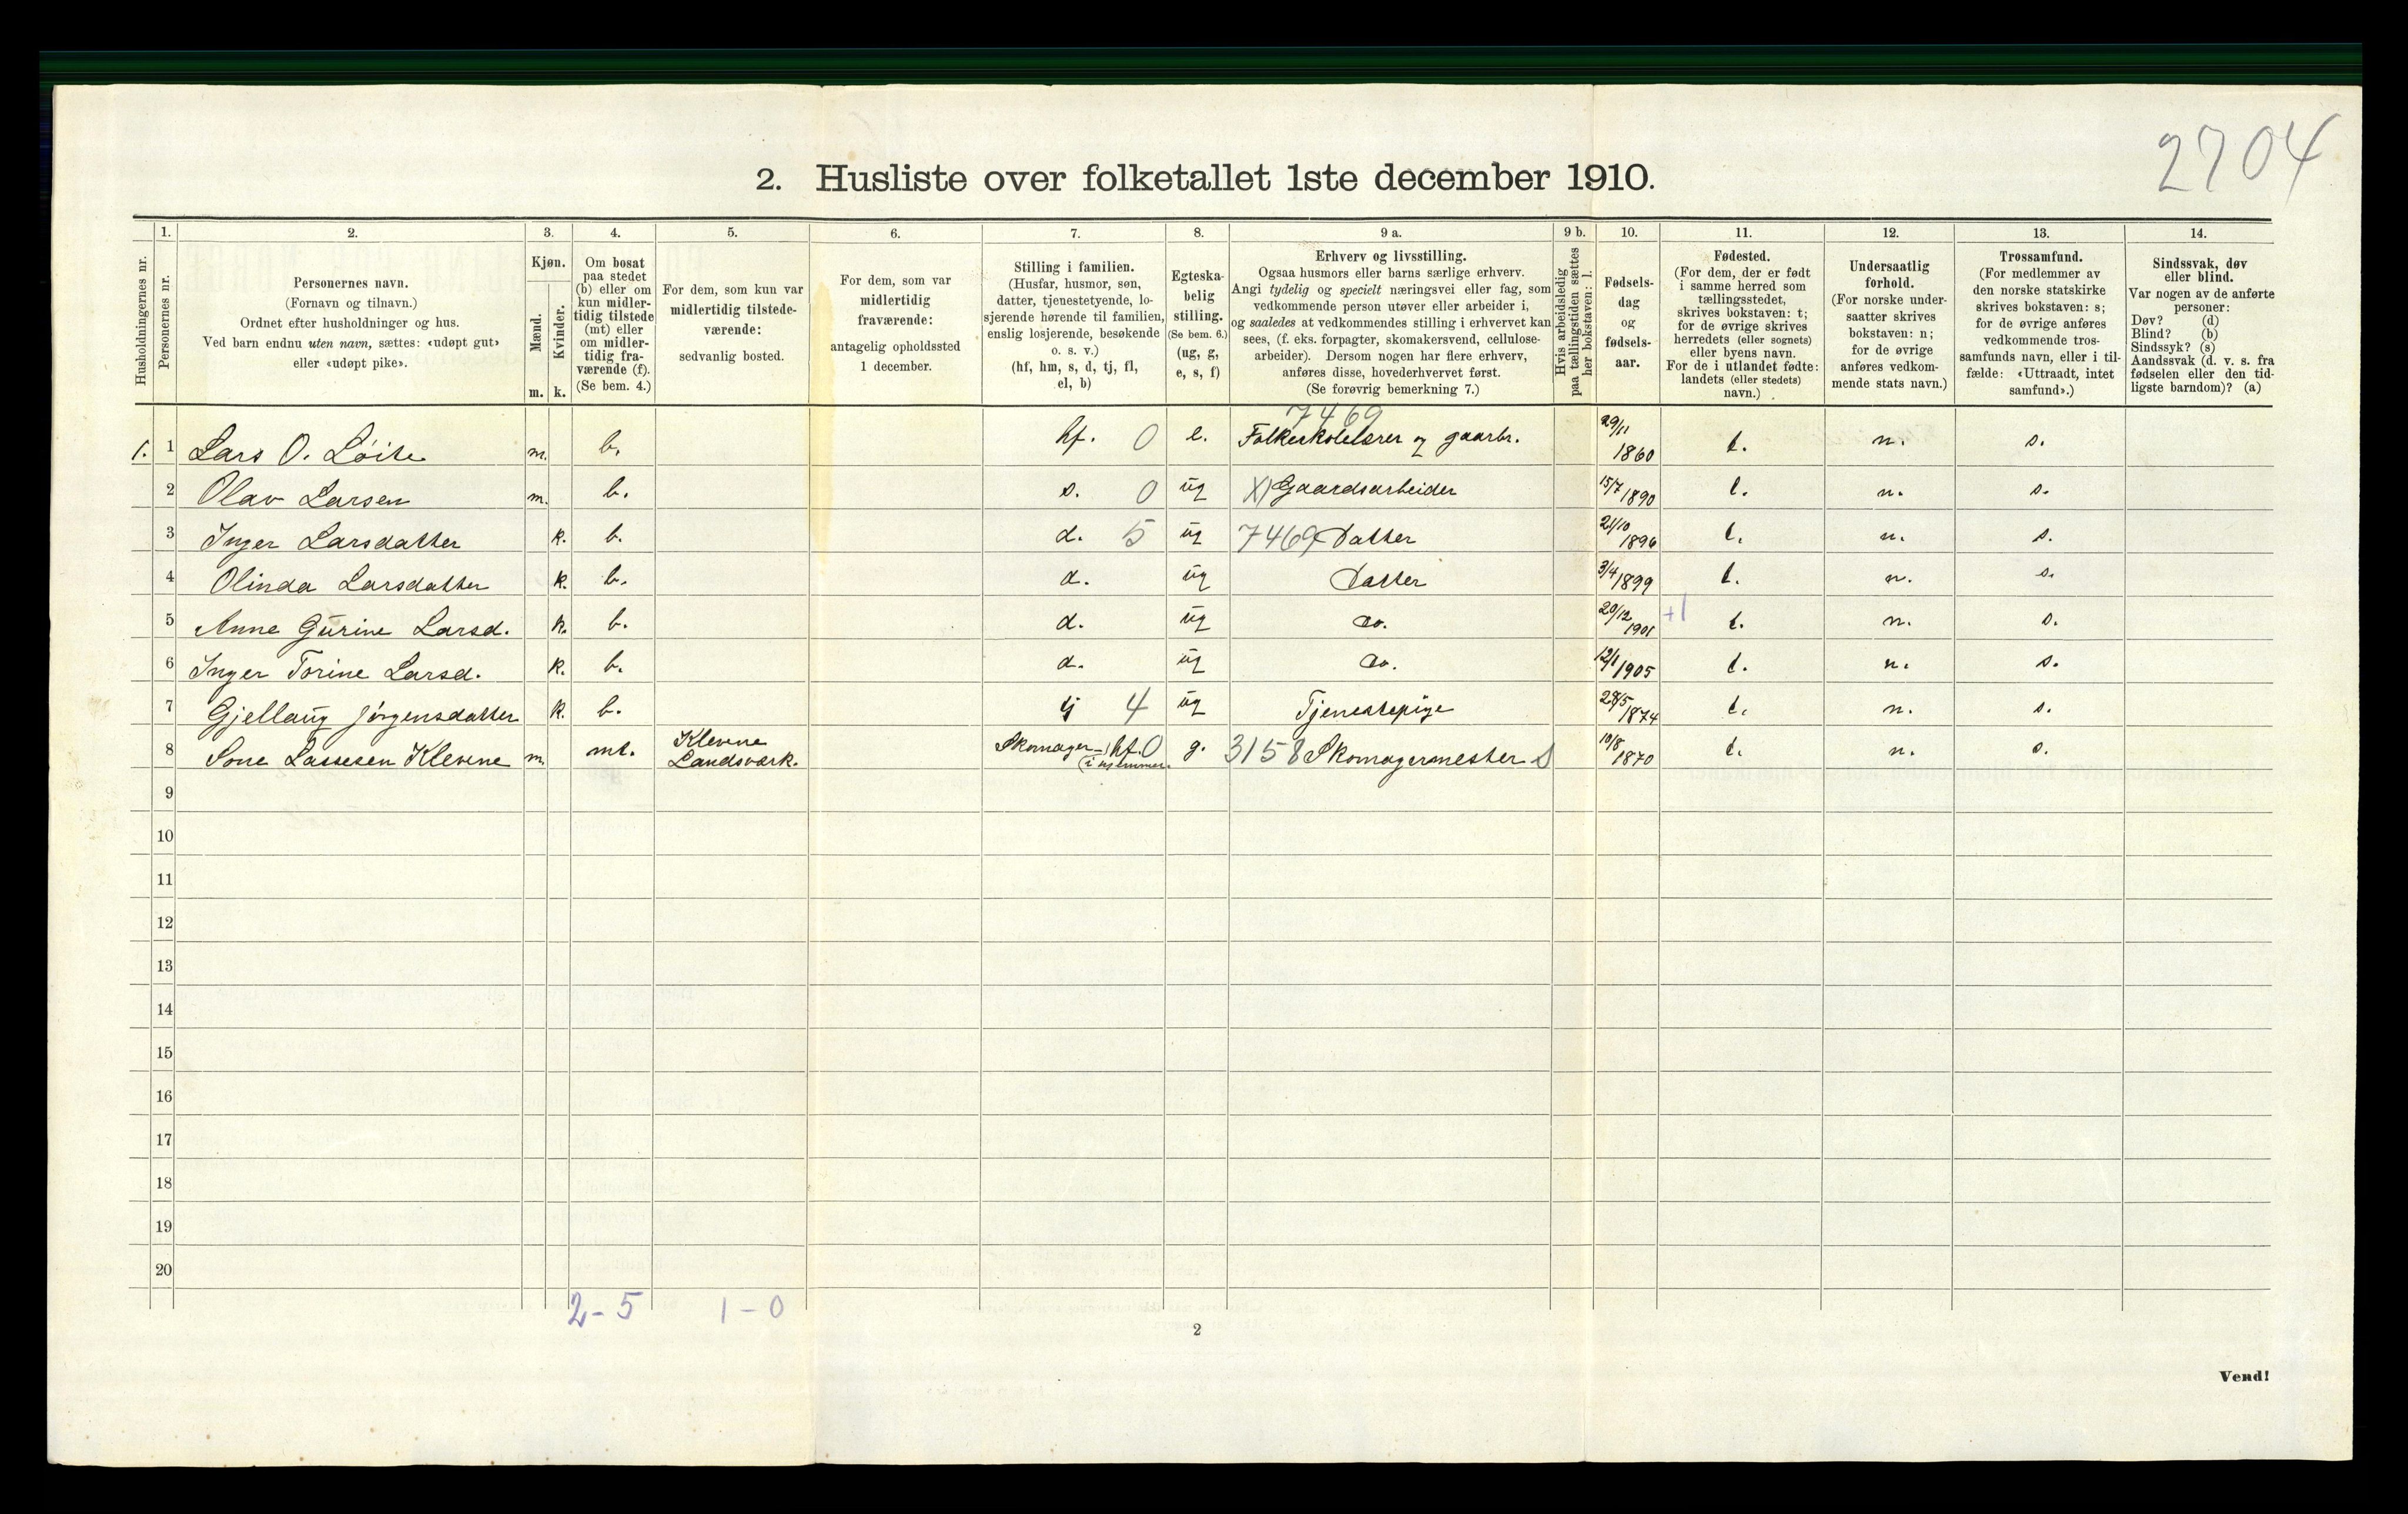 2704
2. Husliste over folketallet 1ste december 1910.
Husholdningernes nr.
1.
Personernes nr.
2.
Personernes navn.
(Fornavn og tilnavn.)
Ordnet efter husholdninger og hus.
Ved barn endnu uten navn, sættes: «udøpt gut»
eller «udøpt pike».
3.
Kjøn.
Mænd.
Kvinder.
m. k.
4.
Om bosat
paa stedet
(b) eller om
kun midler-
tidig tilstede
(mt) eller
om midler-
tidig fra-
værende (f).
(Se bem. 4.)
5.
For dem, som kun var
midlertidig tilstede-
værende:
sedvanlig bosted.
6.
For dem, som var
midlertidig
fraværende:
antagelig opholdssted
1 december.
7.
Stilling i familien.
(Husfar, husmor, søn,
datter, tjenestetyende, lo-
sjerende hørende til familien,
enslig losjerende, besøkende
o. s. v.)
(hf, hm, s, d, tj, fl,
el, b)
8.
Egteska-
belig
stilling.
(Se bem. 6.)
(ug, g,
e, s, f)
9 a.
Erhverv og livsstilling.
Ogsaa husmors eller barns særlige erhverv.
Angi tydelig og specielt næringsvei eller fag, som
vedkommende person utøver eller arbeider i,
og saaledes at vedkommendes stilling i erhvervet kan
sees, (f. eks. forpagter, skomakersvend, cellulose-
arbeider). Dersom nogen har flere erhverv,
anføres disse, hovederhvervet først.
(Se forøvrig bemerkning 7.)
9 b.
Hvis arbeidsledig
paa tællingstiden sættes
her bokstaven: l.
10.
Fødsels-
dag
og
fødsels-
aar.
11.
Fødested.
(For dem, der er født
i samme herred som
tællingsstedet,
skrives bokstaven: t;
for de øvrige skrives
herredets (eller sognets)
eller byens navn.
For de i utlandet fødte:
landets (eller stedets)
navn.)
12.
Undersaatlig
forhold.
(For norske under-
saatter skrives
bokstaven: n;
for de øvrige
anføres vedkom-
mende stats navn.)
13.
Trossamfund.
(For medlemmer av
den norske statskirke
skrives bokstaven: s;
for de øvrige anføres
vedkommende tros-
samfunds navn, eller i til-
fælde: «Uttraadt, intet
samfund».)
14.
Sindssvak, døv
eller blind.
Var nogen av de anførte
personer:
Døv? (d)
Blind? (b)
Sindssyk? (s)
Aandssvak (d. v. s. fra
fødselen eller den tid-
ligste barndom)? (a)
7469
1. 1 Lars O. Löite m. b. hf. 0 e. Folkeskolelærer og gaarbr. 29/11 1860 t. n. s.
2 Olav Larsen m. b. s. 0 ug X) Gaardsarbeider 15/7 1890 t. n. s.
3 Inger Larsdatter k. b. d. 5 ug 7469 Datter 21/10 1896 t. n. s.
4 Olinda Larsdatter k. b. d. ug Datter 3/4 1899 t. n. s.
5 Anne Gurine Larsd. k. b. d. ug do. 20/12 1901 +1 t. n. s.
6 Inger Torine Larsd. k. b. d. ug do. 12/1 1905 t. n. s.
7 Gjellaug Jörgensdatter k. b. tj 4 ug Tjenestepige 28/5 1874 t. n. s.
8 Sone Lassesen Klevene m. mt. Klevene Landsværk. Skomager- hf. 0 g. 3158 Skomagermester S 10/8 1870 t. n. s.
9
10
11
12
13
14
15
16
17
18
19
20
2-5 1-0
2
Vend!